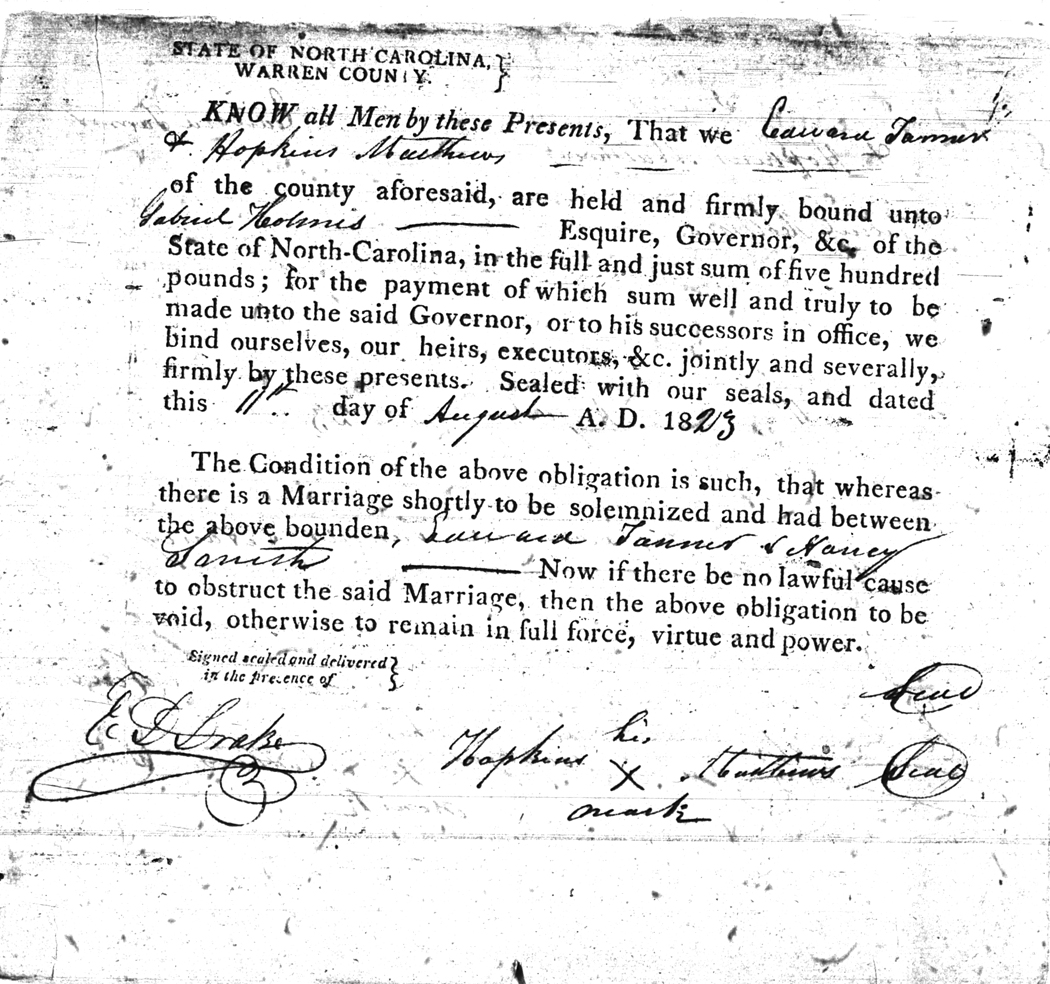 STATE OF NORTH CAROLINA, }
WARREN COUNTY.
KNOW all Men by these Presents, That we Edward Tanner
& Hopkins Matthews
of the county aforesaid, are held and firmly bound unto
Gabriel Holmes Esquire, Governor, &c. of the
State of North-Carolina, in the full and just sum of five hundred
pounds; for the payment of which sum well and truly to be
made unto the said Governor, or to his successors in office, we
bind ourselves, our heirs, executors, &c. jointly and severally,
firmly by these presents. Sealed with our seals, and dated
this 11th day of August A. D. 1823
The Condition of the above obligation is such, that whereas
there is a Marriage shortly to be solemnized and had between
the above bounden, Edward Tanner & Nancy
Smith Now if there be no lawful cause
to obstruct the said Marriage, then the above obligation to be
void, otherwise to remain in full force, virtue and power.
Signed sealed and delivered }
in the presence of
Seal
E D Drake
his
Hopkins X Matthews Seal
mark